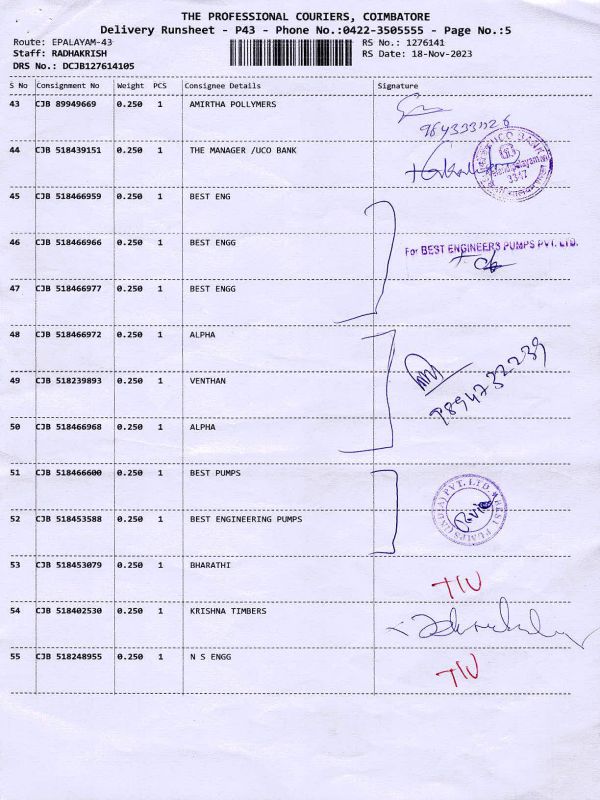 THE PROFESSIONAL COURIERS, COIMBATORE
Delivery Runsheet - P43 - Phone No.:0422-3505555 - Page No.:5
Route: EPALAYAM-43 RS No.: 1276141
Staff: RADHAKRISH RS Date: 18-Nov-2023
DRS No.: DCJB127614105
S No Consignment No Weight PCS Consignee Details Signature
43 CJB 89949669 0.250 1 AMIRTHA POLLYMERS
44 CJB 518439151 0.250 1 THE MANAGER /UCO BANK
UCO BANK
3347
45 CJB 518466959 0.250 1 BEST ENG
46 CJB 518466966 0.250 1 BEST ENGG
For BEST ENGINEERS PUMPS PVT. LTD.
47 CJB 518466977 0.250 1 BEST ENGG
48 CJB 518466972 0.250 1 ALPHA
49 CJB 518239893 0.250 1 VENTHAN
9894732239
50 CJB 518466968 0.250 1 ALPHA
51 CJB 518466600 0.250 1 BEST PUMPS
BEST PUMPS (INDIA) PVT. LTD.
52 CJB 518453588 0.250 1 BEST ENGINEERING PUMPS
53 CJB 518453079 0.250 1 BHARATHI
54 CJB 518402530 0.250 1 KRISHNA TIMBERS
55 CJB 518248955 0.250 1 N S ENGG